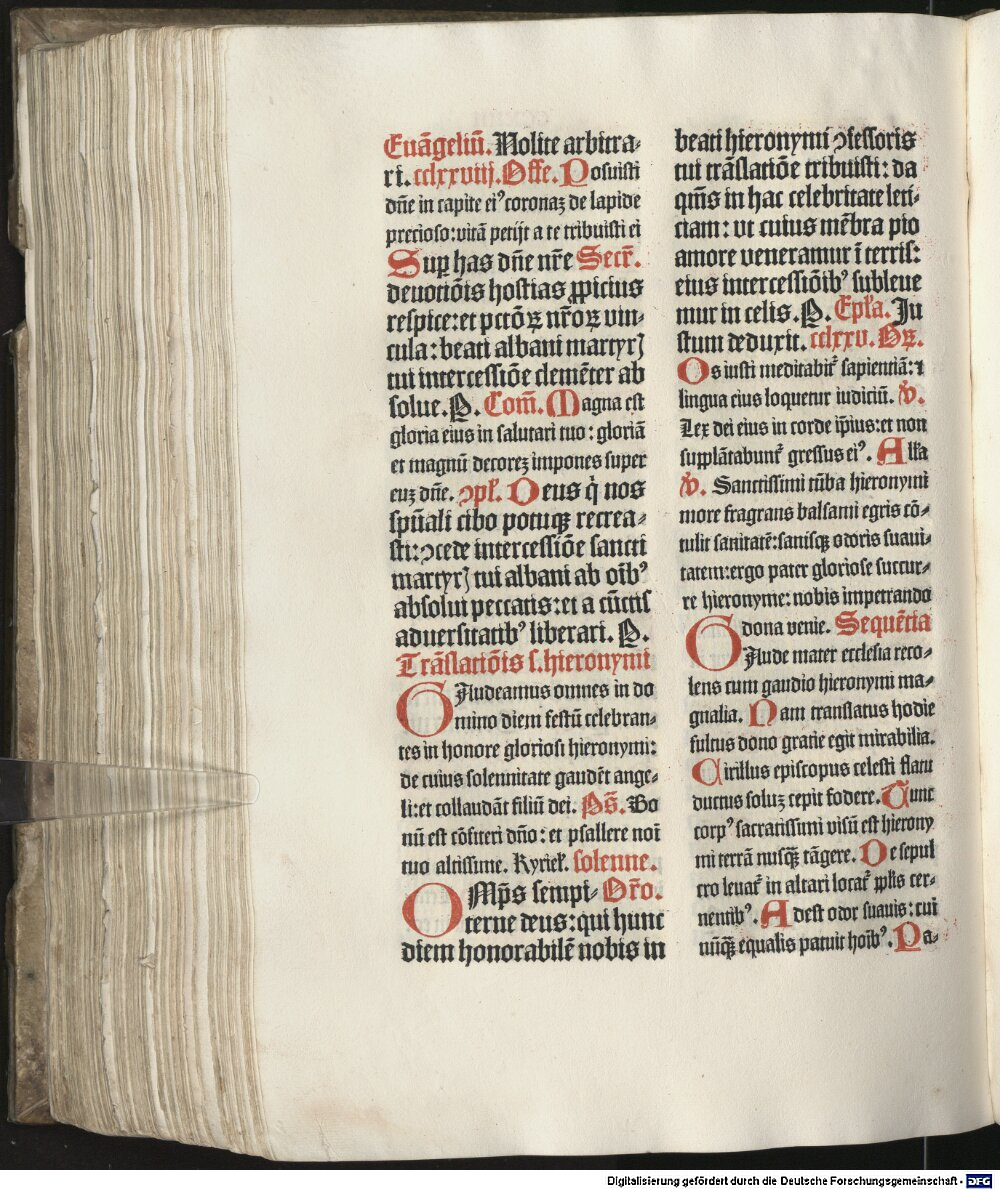 Euāgeliū. Nolite arbitra⸗
ri. cclxxviij. Offe. Posuisti
dn̄e in capite eiꝰ coronaz de lapide
precioso: vitā petijt a te tribuisti ei
Suꝑ has dn̄e nr̄e Secr̄.
deuotiōis hostias ꝓpicius
respice: et pctōꝝ nr̄oꝝ vin⸗
cula: beati albani martyrꝭ
tui intercessiōe clemēter ab
solue. P. Com̄. Magna est
gloria eius in salutari tuo: gloriā
et magnū decorez impones super
euz dn̄e. ꝯpl̄. Deus q̇ nos
spūali cibo potuqꝫ recrea⸗
sti: ꝯcede intercessiōe sancti
martyrꝭ tui albani ab oīb⁹
absolui peccatis: et a cūctis
aduersitatib⁹ liberari. P.
Trāslatiōis s. hieronymi
GAudeamus omnes in do
mino diem festū celebran⸗
tes in honore gloriosi hieronymi:
de cuius solennitate gaudēt ange⸗
li: et collaudāt filiū dei. Ps̄. Bo
nū est cōfiteri dn̄o: et psallere noī
tuo altissime. Kyriel̄. solenne.
OMps̄ sempi⸗ Or̄o.
terne deus: qui hunc
diem honorabilē nobis in
beati hieronymi ꝯfessoris
tui trāslatiōe tribuisti: da
qm̄s in hac celebritate leti⸗
ciam: vt cuius mēbra pio
amore veneramur ī terris:
eius intercessiōib⁹ subleue
mur in celis. P. Epl̄a. Ju
stum deduxit. cclxxv. Gꝝ.
Os iusti meditabit̄ sapientiā: ⁊
lingua eius loquetur iudiciū. v̄.
Lex dei eius in corde ip̄ius: et non
supplātabunt̄ gressus ei⁹. All̄a
v̄. Sanctissimi tūba hieronymi
more fragrans balsami egris cō⸗
tulit sanitatē: sanisqꝫ odoris suaui⸗
tatem: ergo pater gloriose succur⸗
re hieronyme: nobis impetrando
dona venie. Sequētia
GAude mater ecclesia reco⸗
lens cum gaudio hieronymi ma⸗
gnalia. Nam translatus hodie
fultus dono gratie egit mirabilia.
Cirillus episcopus celesti flatu
ductus soluz cepit fodere. Tunc
corp⁹ sacratissimi visū est hierony
mi terrā nusqꝫ̄ tāgere. De sepul
cro leuat̄ in altari locat̄ ꝓl̄is cer⸗
nentib⁹. Adest odor suauis: cui
nūqꝫ̄ equalis patuit hoīb⁹. Pa⸗
Digitalisierung gefördert durch die Deutsche Forschungsgemeinschaft - DFG